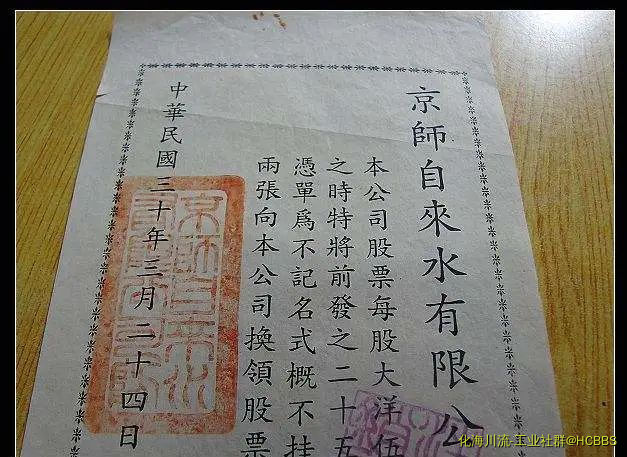 京師自來水有限公
本公司股票每股大洋伍
之時特將前發之二十五
憑單爲不記名式概不挂
兩張向本公司換領股票
中華民國三十年三月二十四日
化海川流-玉业社群@HCBBS